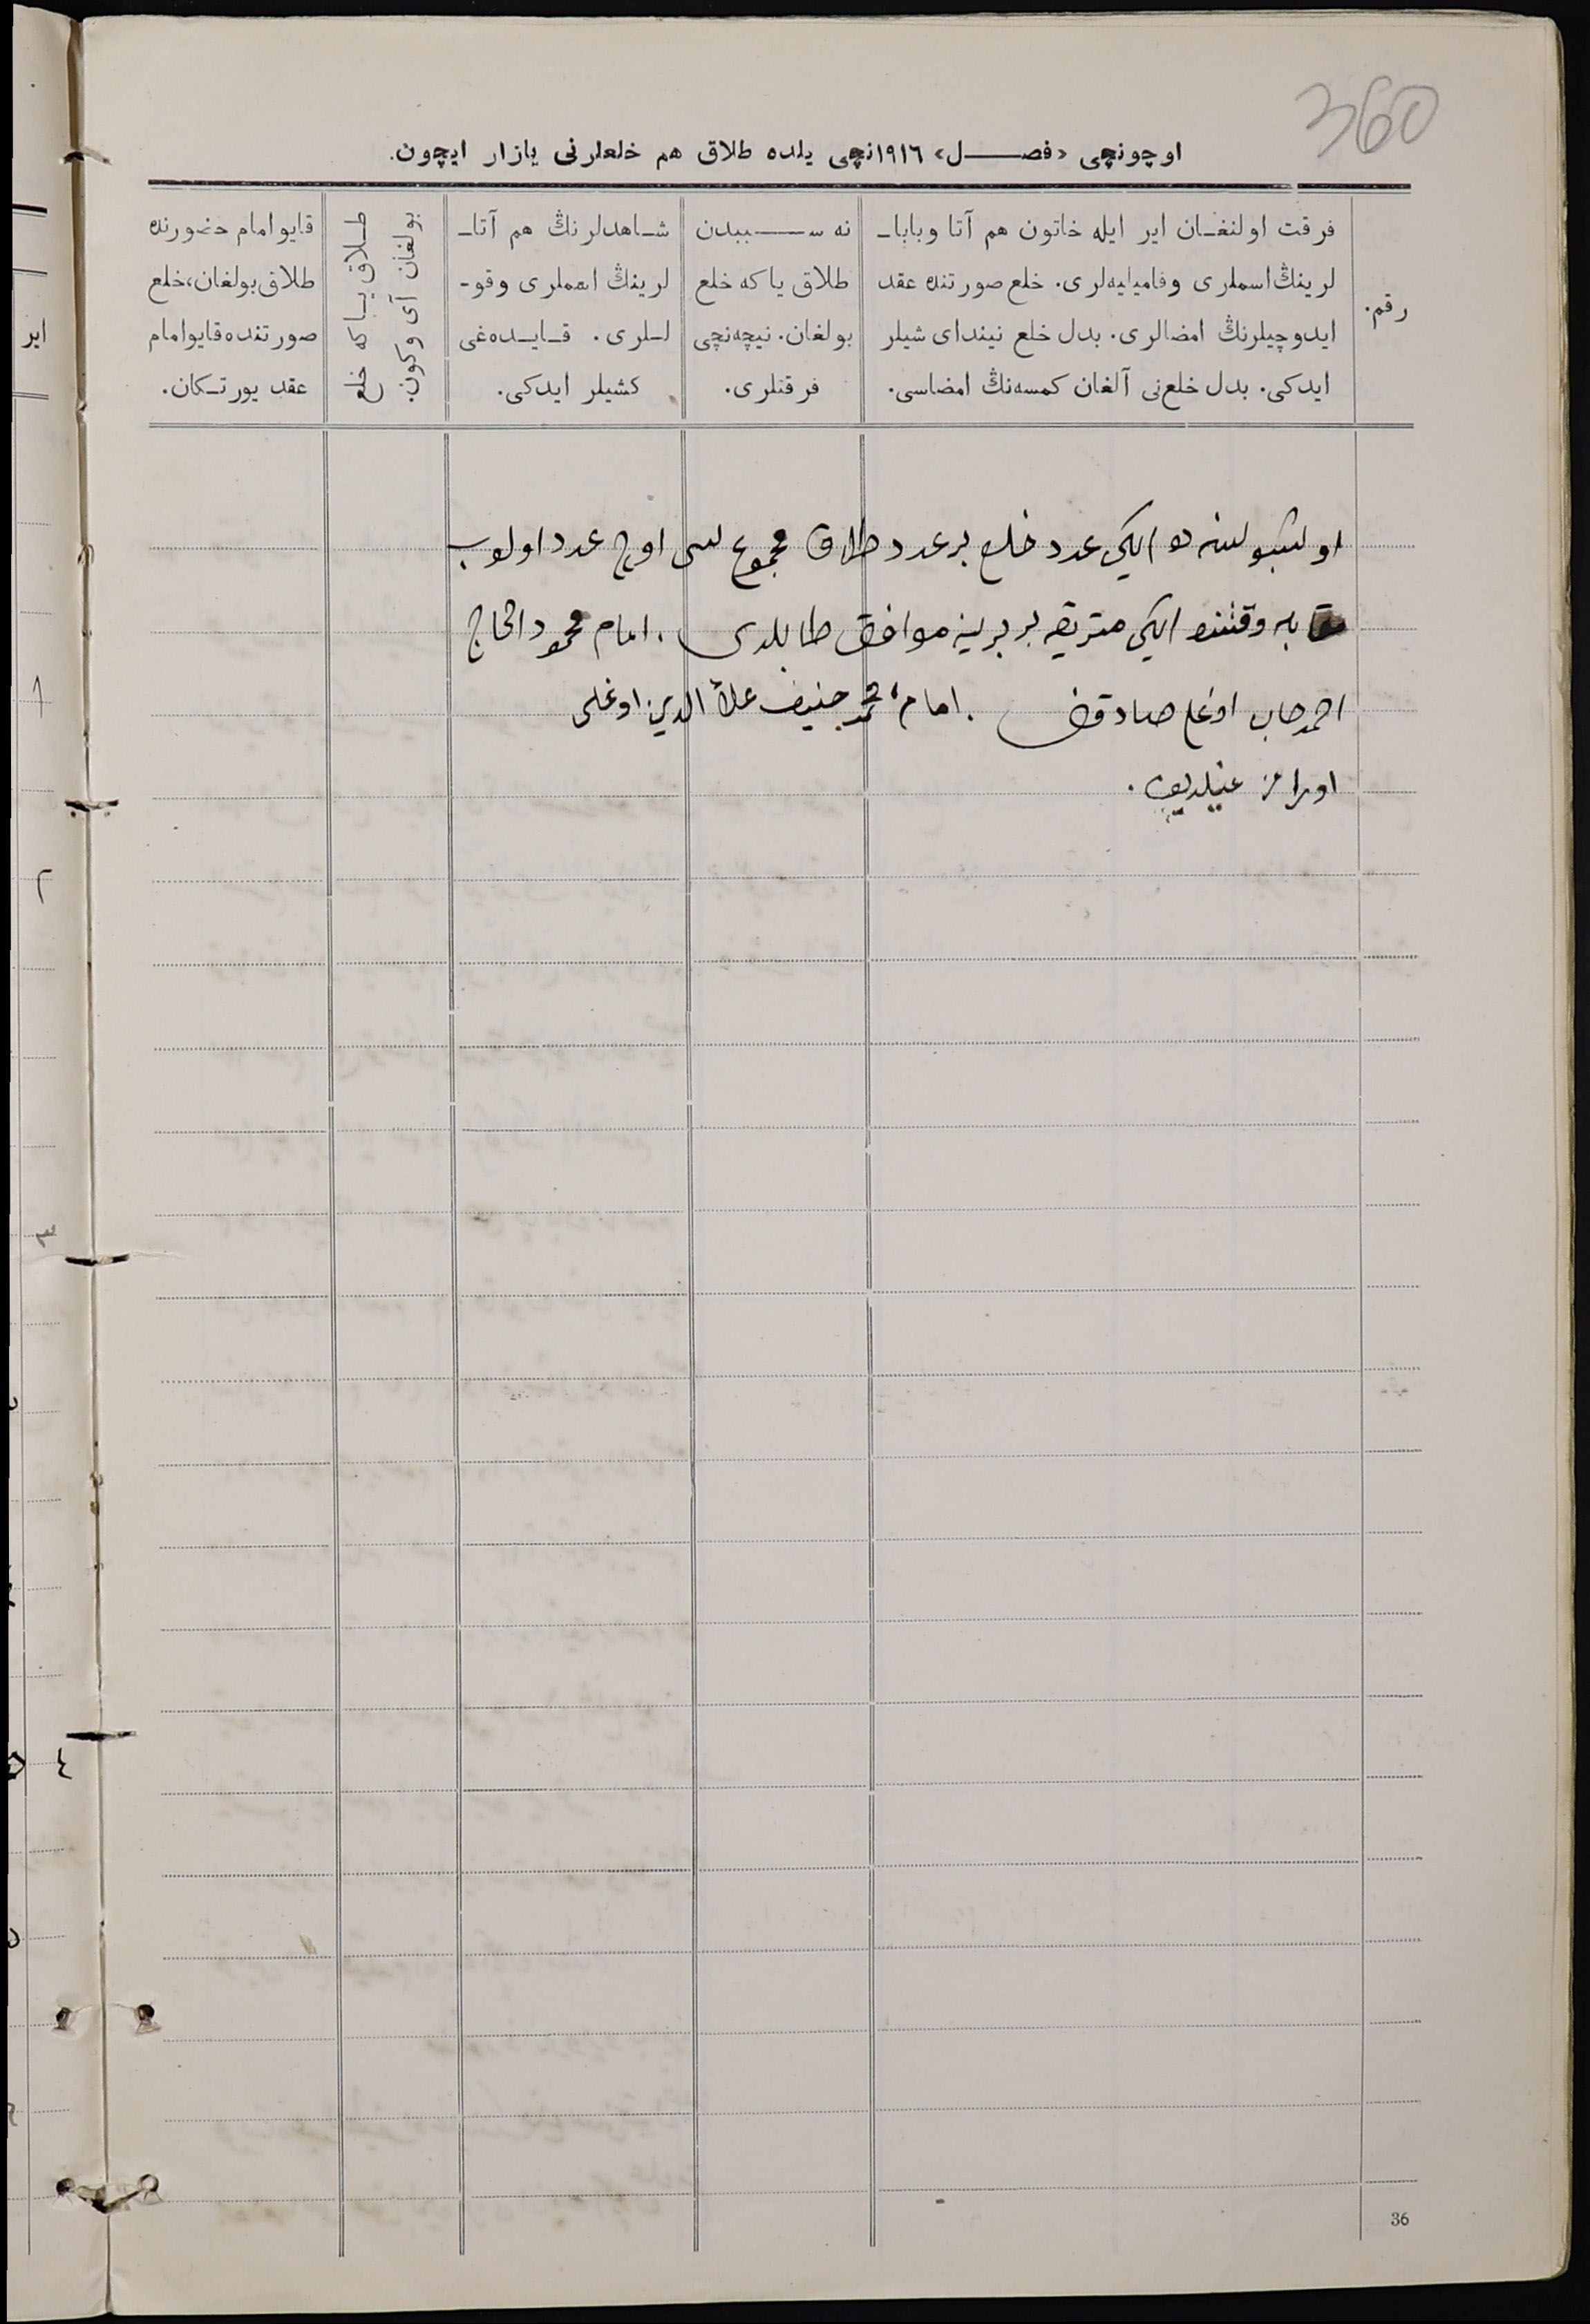 360
اوچونچی «فصل» ١٩١٦نچی یلده طلاق هم خلعلرنی یازار ایچون.
رقم.
فرقت اولنغان ایر ایله خاتون هم آتا وبابا-
لرینڭ اسملری وفامیلیه‌لری. خلع صورتنده عقد
ایدوچیلرنڭ امضالری. بدل خلع نیندای شیلر
ایدکی. بدل خلع‌نی آلغان کمسه‌نڭ امضاسی.
نه سببدن
طلاق یا که خلع
بولغان. نیچه‌نچی
فرقتلری.
شاهدلرنڭ هم آتا-
لرینڭ اسملری وقو-
للری. قایده‌غی
کشیلر ایدکی.
طلاق یا که خلع
بولغان آی وکون
قایو امام حضورنده
طلاق بولغان، خلع
صورتنده قایو امام
عقد یورتکان.
اوشبو ایکی عدد خلع بر عدد طلاق مجموع اوچ عدد اولوب
وقتنده ایکی متریقه بر برینه موافق طابلدی. امام محمود الحاج
احمدجان اوغلی صادقف. امام محمد حنیف علاء الدین اوغلی
36
ایر
١
٢
٣
٤